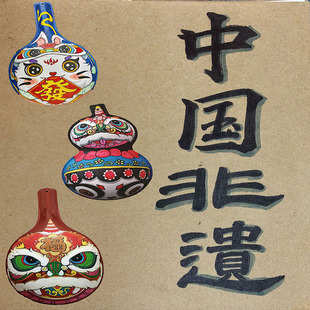 中国非遺
發